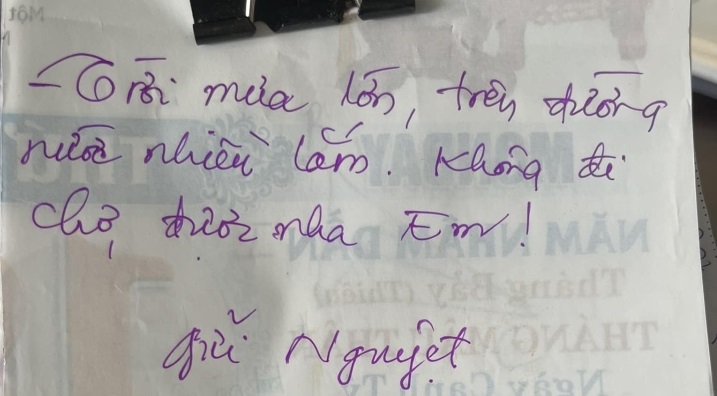 - Trời mưa lớn, trên đường
nước nhiều lắm. Không đi
chợ được nha Em!
Gửi Nguyệt